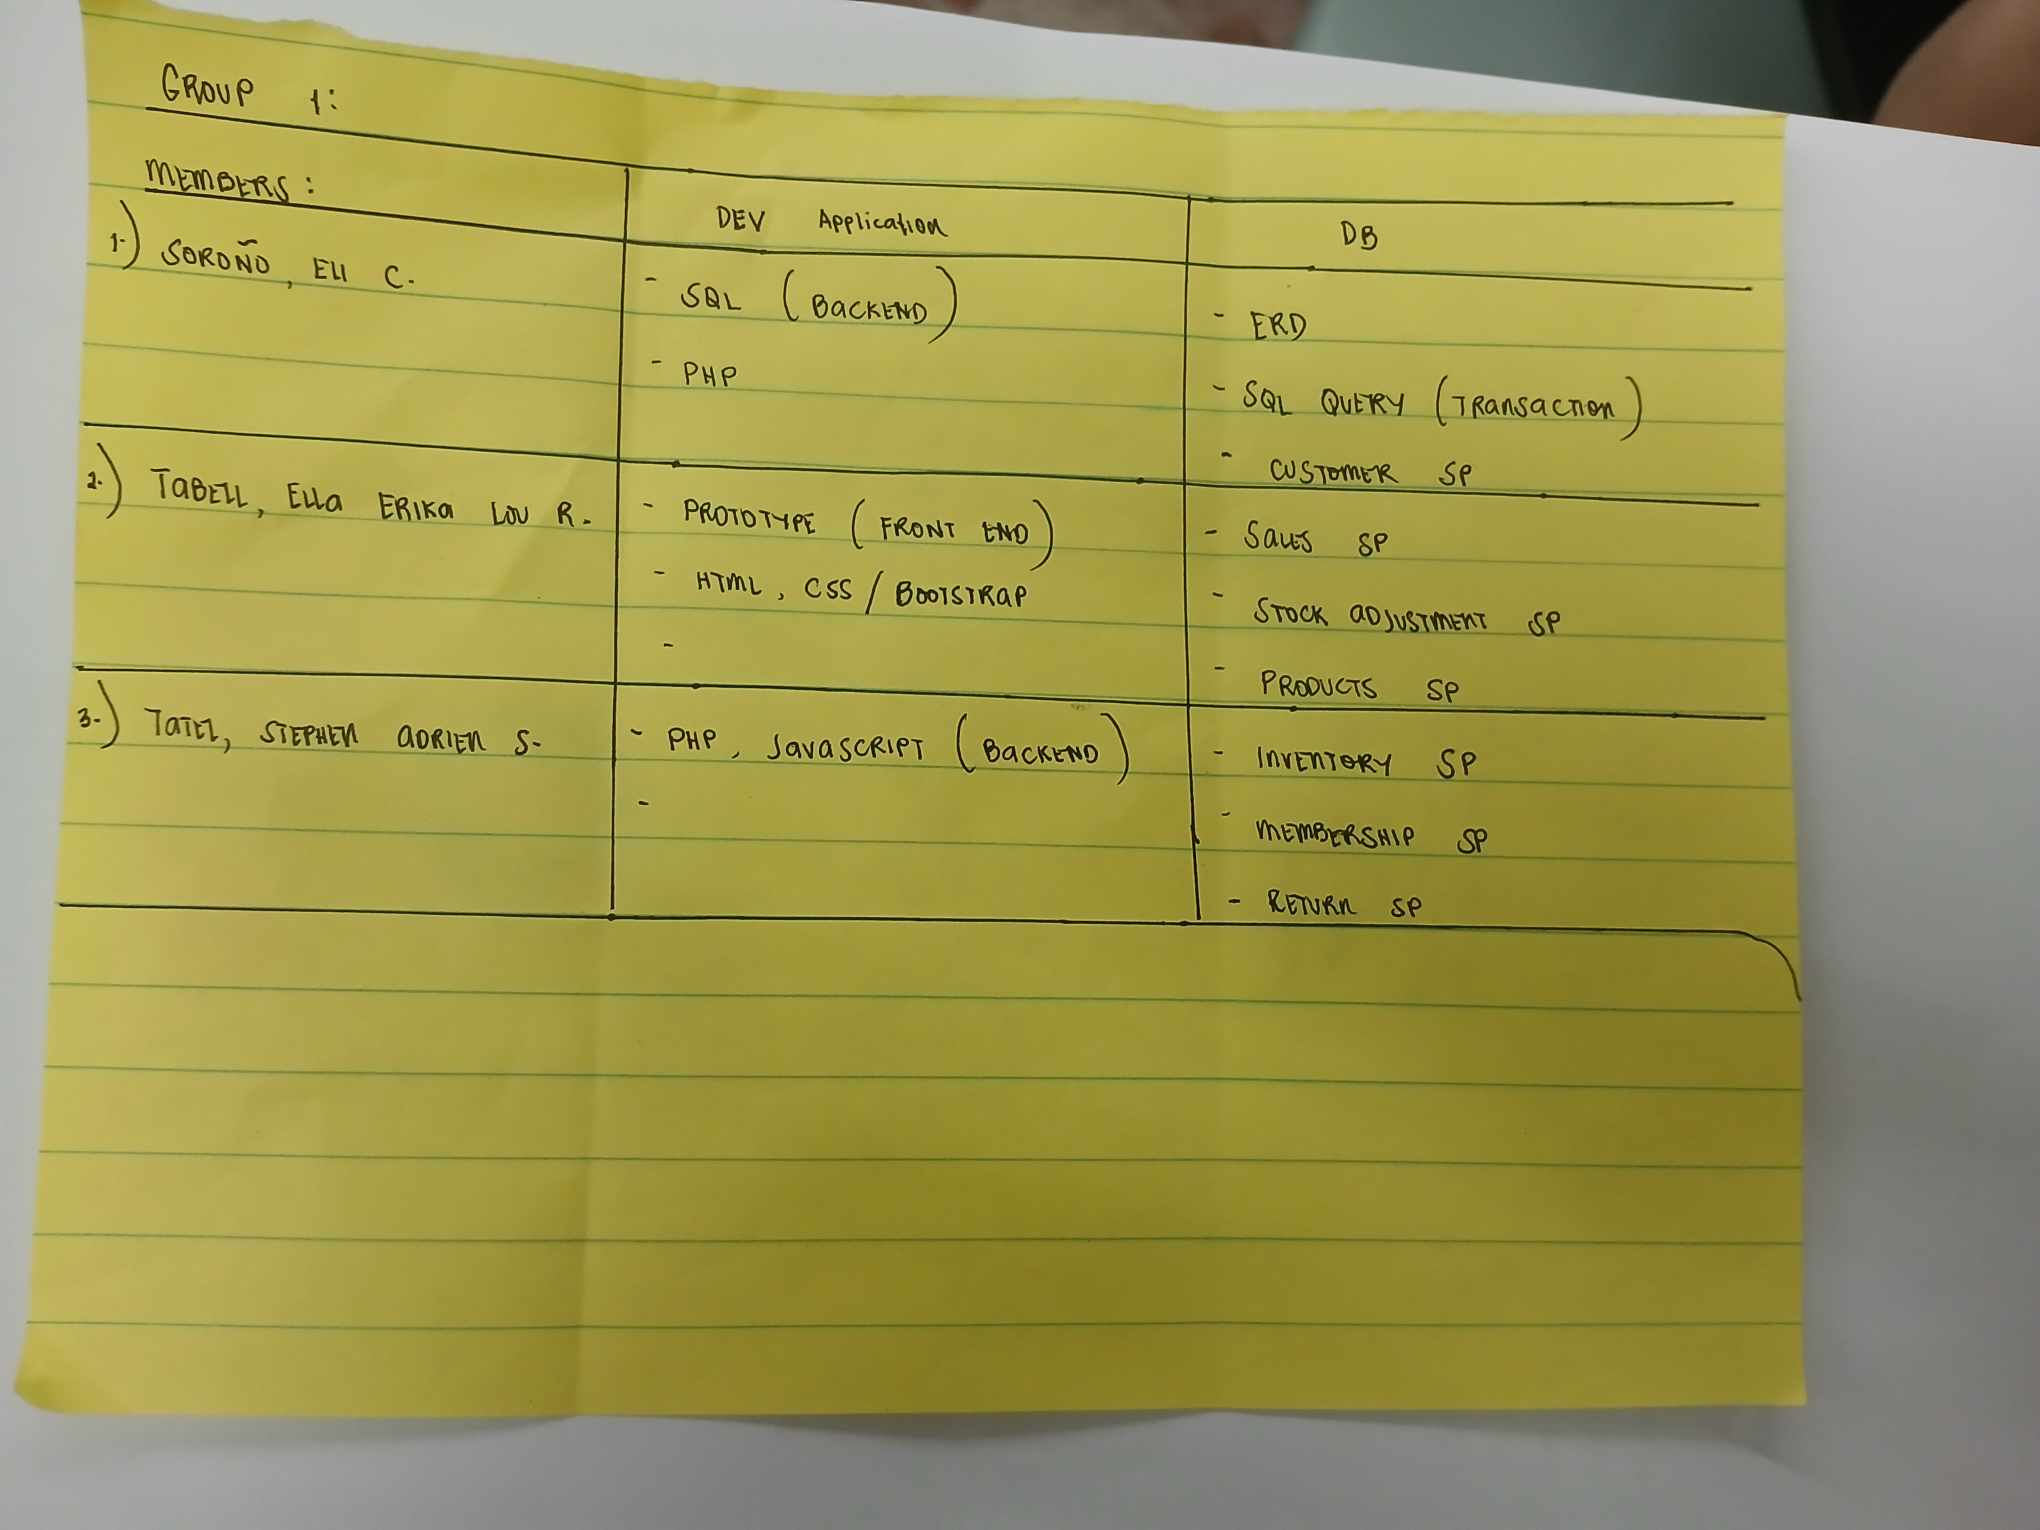 GROUP 1:
MEMBERS:
DEV Application
DB
1.) SOROÑO, ELI C.
- SQL (BACKEND)
- PHP
- ERD
- SQL QUERY (TRANSACTION)
- CUSTOMER SP
2.) TABELL, ELLA ERIKA LOU R.
- PROTOTYPE (FRONT END)
- HTML, CSS / BOOTSTRAP
-
- SALES SP
- STOCK ADJUSTMENT SP
- PRODUCTS SP
3.) TATEL, STEPHEN ADRIEN S.
- PHP, JAVASCRIPT (BACKEND)
-
- INVENTORY SP
- MEMBERSHIP SP
- RETURN SP